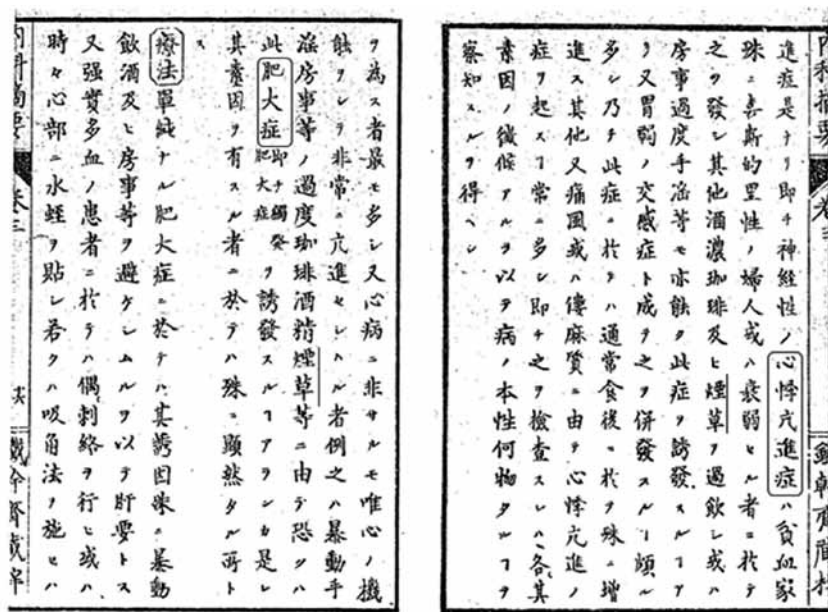 進症是ナリ即チ神經性ノ心悸亢進症ハ貧血家
殊ニ喜斯的里性ノ婦人或ハ衰弱セル者ニ於テ
之ヲ發シ其他酒濃珈琲及ヒ煙草ヲ過飲シ或ハ
房事過度手淫等モ亦能ク此症ヲ誘發スルヿア
リ又胃弱ノ交感症ト成テ之ヲ併發スルヿ頗ル
多シ乃チ此症ニ於テハ通常食後ニ於テ殊ニ增
進ス其他又痛風或ハ僂麻質ニ由テ心悸亢進ノ
症ヲ起スヿ常ニ多シ即チ之ヲ檢查スレハ各其
素因ノ徵候アルヲ以テ病ノ本性何物タルヿヲ
察知スルヲ得ヘシ
ヲ為ス者最モ多シ又心病ニ非サルモ唯心ノ機
能ヲシテ非常ニ亢進セシムル者例之ハ暴動手
淫房事等ノ過度珈琲酒精煙草等ニ由テ恐クハ
此肥大症即チ獨發肥大症ヲ誘發スルヿアランカ是レ
其素因ヲ有スル者ニ於テハ殊ニ顯然タル所ト
ス
療法單純ナル肥大症ニ於テハ其誘因殊ニ暴動
飲酒及ヒ房事等ヲ避ケシムルヲ以テ肝要トス
又强實多血ノ患者ニ於テハ偶刺絡ヲ行ヒ或ハ
時々心部ニ水蛭ヲ貼シ若クハ吸角法ヲ施セハ
內科摘要 卷三